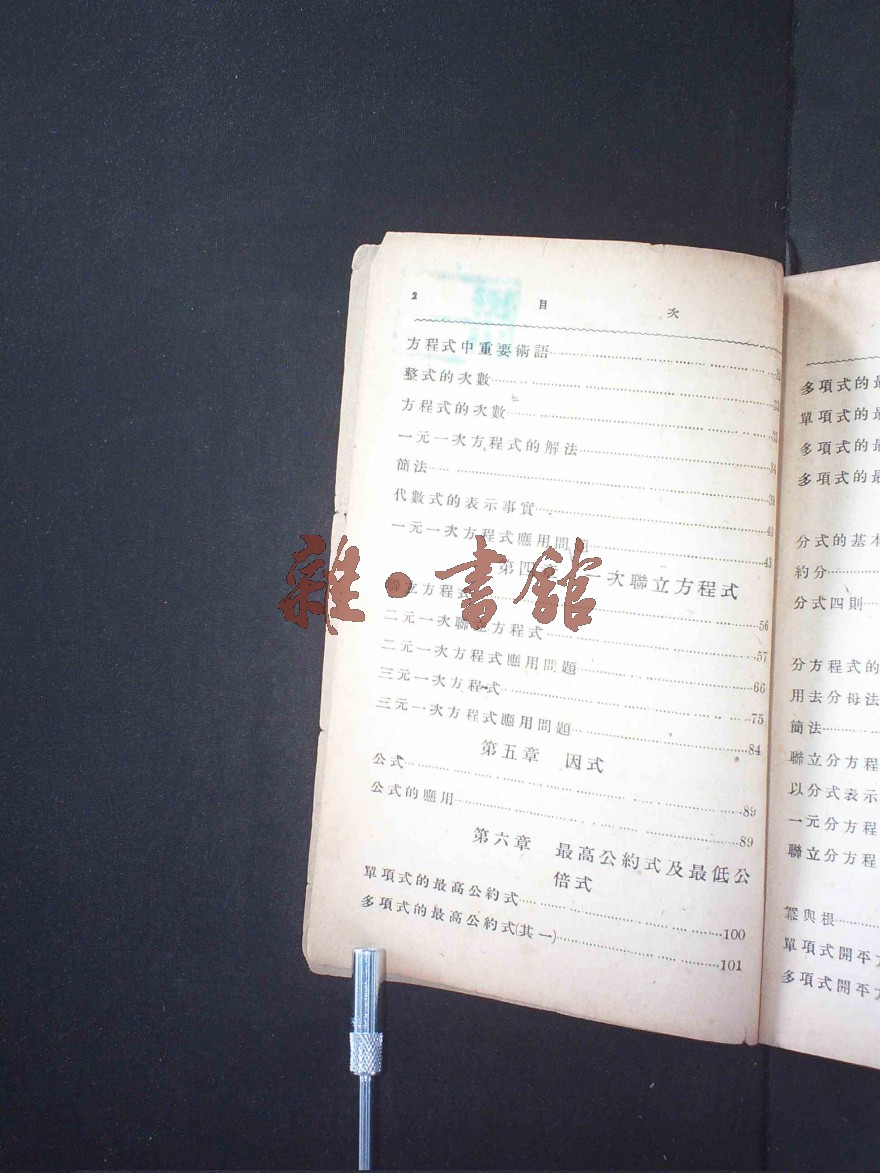 2 目 次
方程式中重要術語
整式的次數 33
方程式的次數 33
一元一次方程式的解法 34
簡法 38
代數式的表示事實 40
一元一次方程式應用問題 43
第四章 一次聯立方程式
聯立方程式 56
二元一次聯立方程式 57
二元一次方程式應用問題 66
三元一次方程式 75
三元一次方程式應用問題 84
第五章 因式
公式 89
公式的應用 89
第六章 最高公約式及最低公
倍式
單項式的最高公約式 100
多項式的最高公約式(其一) 101
多項式的最
單項式的最
多項式的最
多項式的最
分式的基本
約分
分式四則
分方程式的
用去分母法
簡法
聯立分方程
以分式表示
一元分方程
聯立分方程
羃與根
單項式開平方
多項式開平方
雜·書館